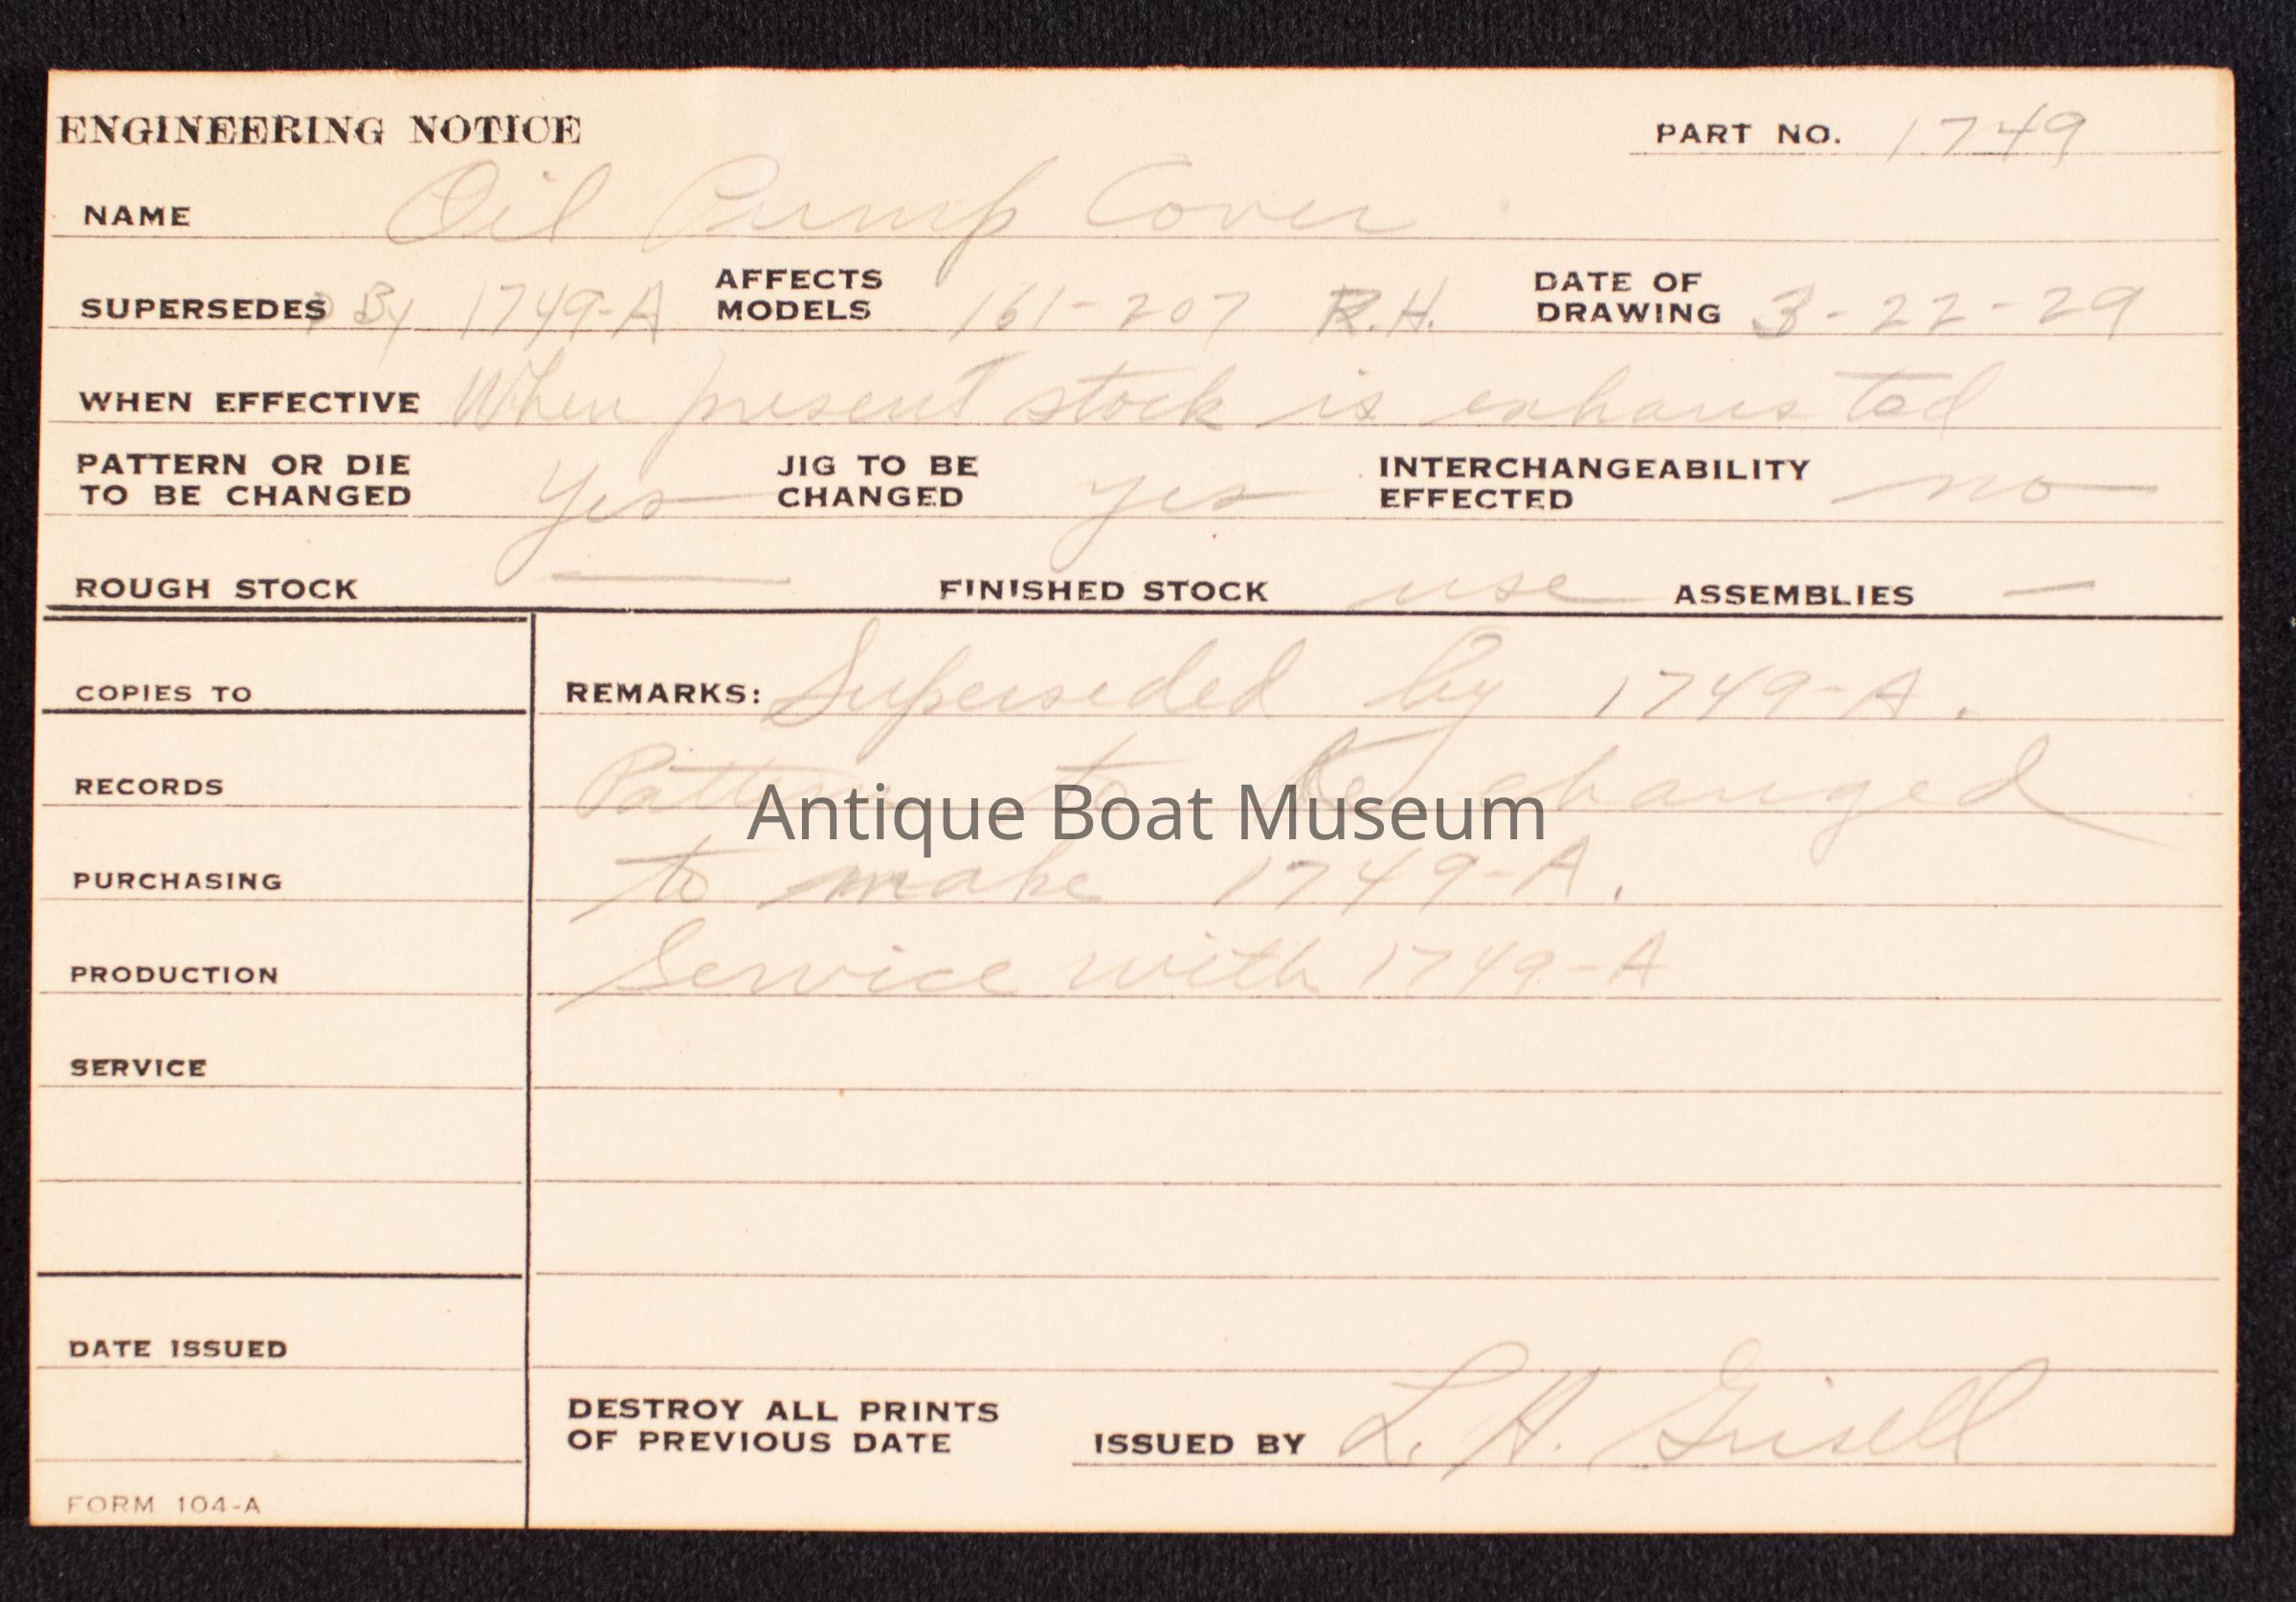 ENGINEERING NOTICE PART NO. 1749
NAME Oil Pump Cover
SUPERSEDESD By 1749-A AFFECTS MODELS 161-207 R.H. DATE OF DRAWING 3-22-29
WHEN EFFECTIVE When present stock is exhausted
PATTERN OR DIE TO BE CHANGED Yes JIG TO BE CHANGED yes INTERCHANGEABILITY EFFECTED no
ROUGH STOCK — FINISHED STOCK use ASSEMBLIES —
COPIES TO REMARKS: Superseded by 1749-A.
RECORDS Pattern to be changed
Antique Boat Museum
PURCHASING to make 1749-A.
PRODUCTION Service with 1749-A
SERVICE
DATE ISSUED
DESTROY ALL PRINTS OF PREVIOUS DATE ISSUED BY L. H. Grisell
FORM 104-A